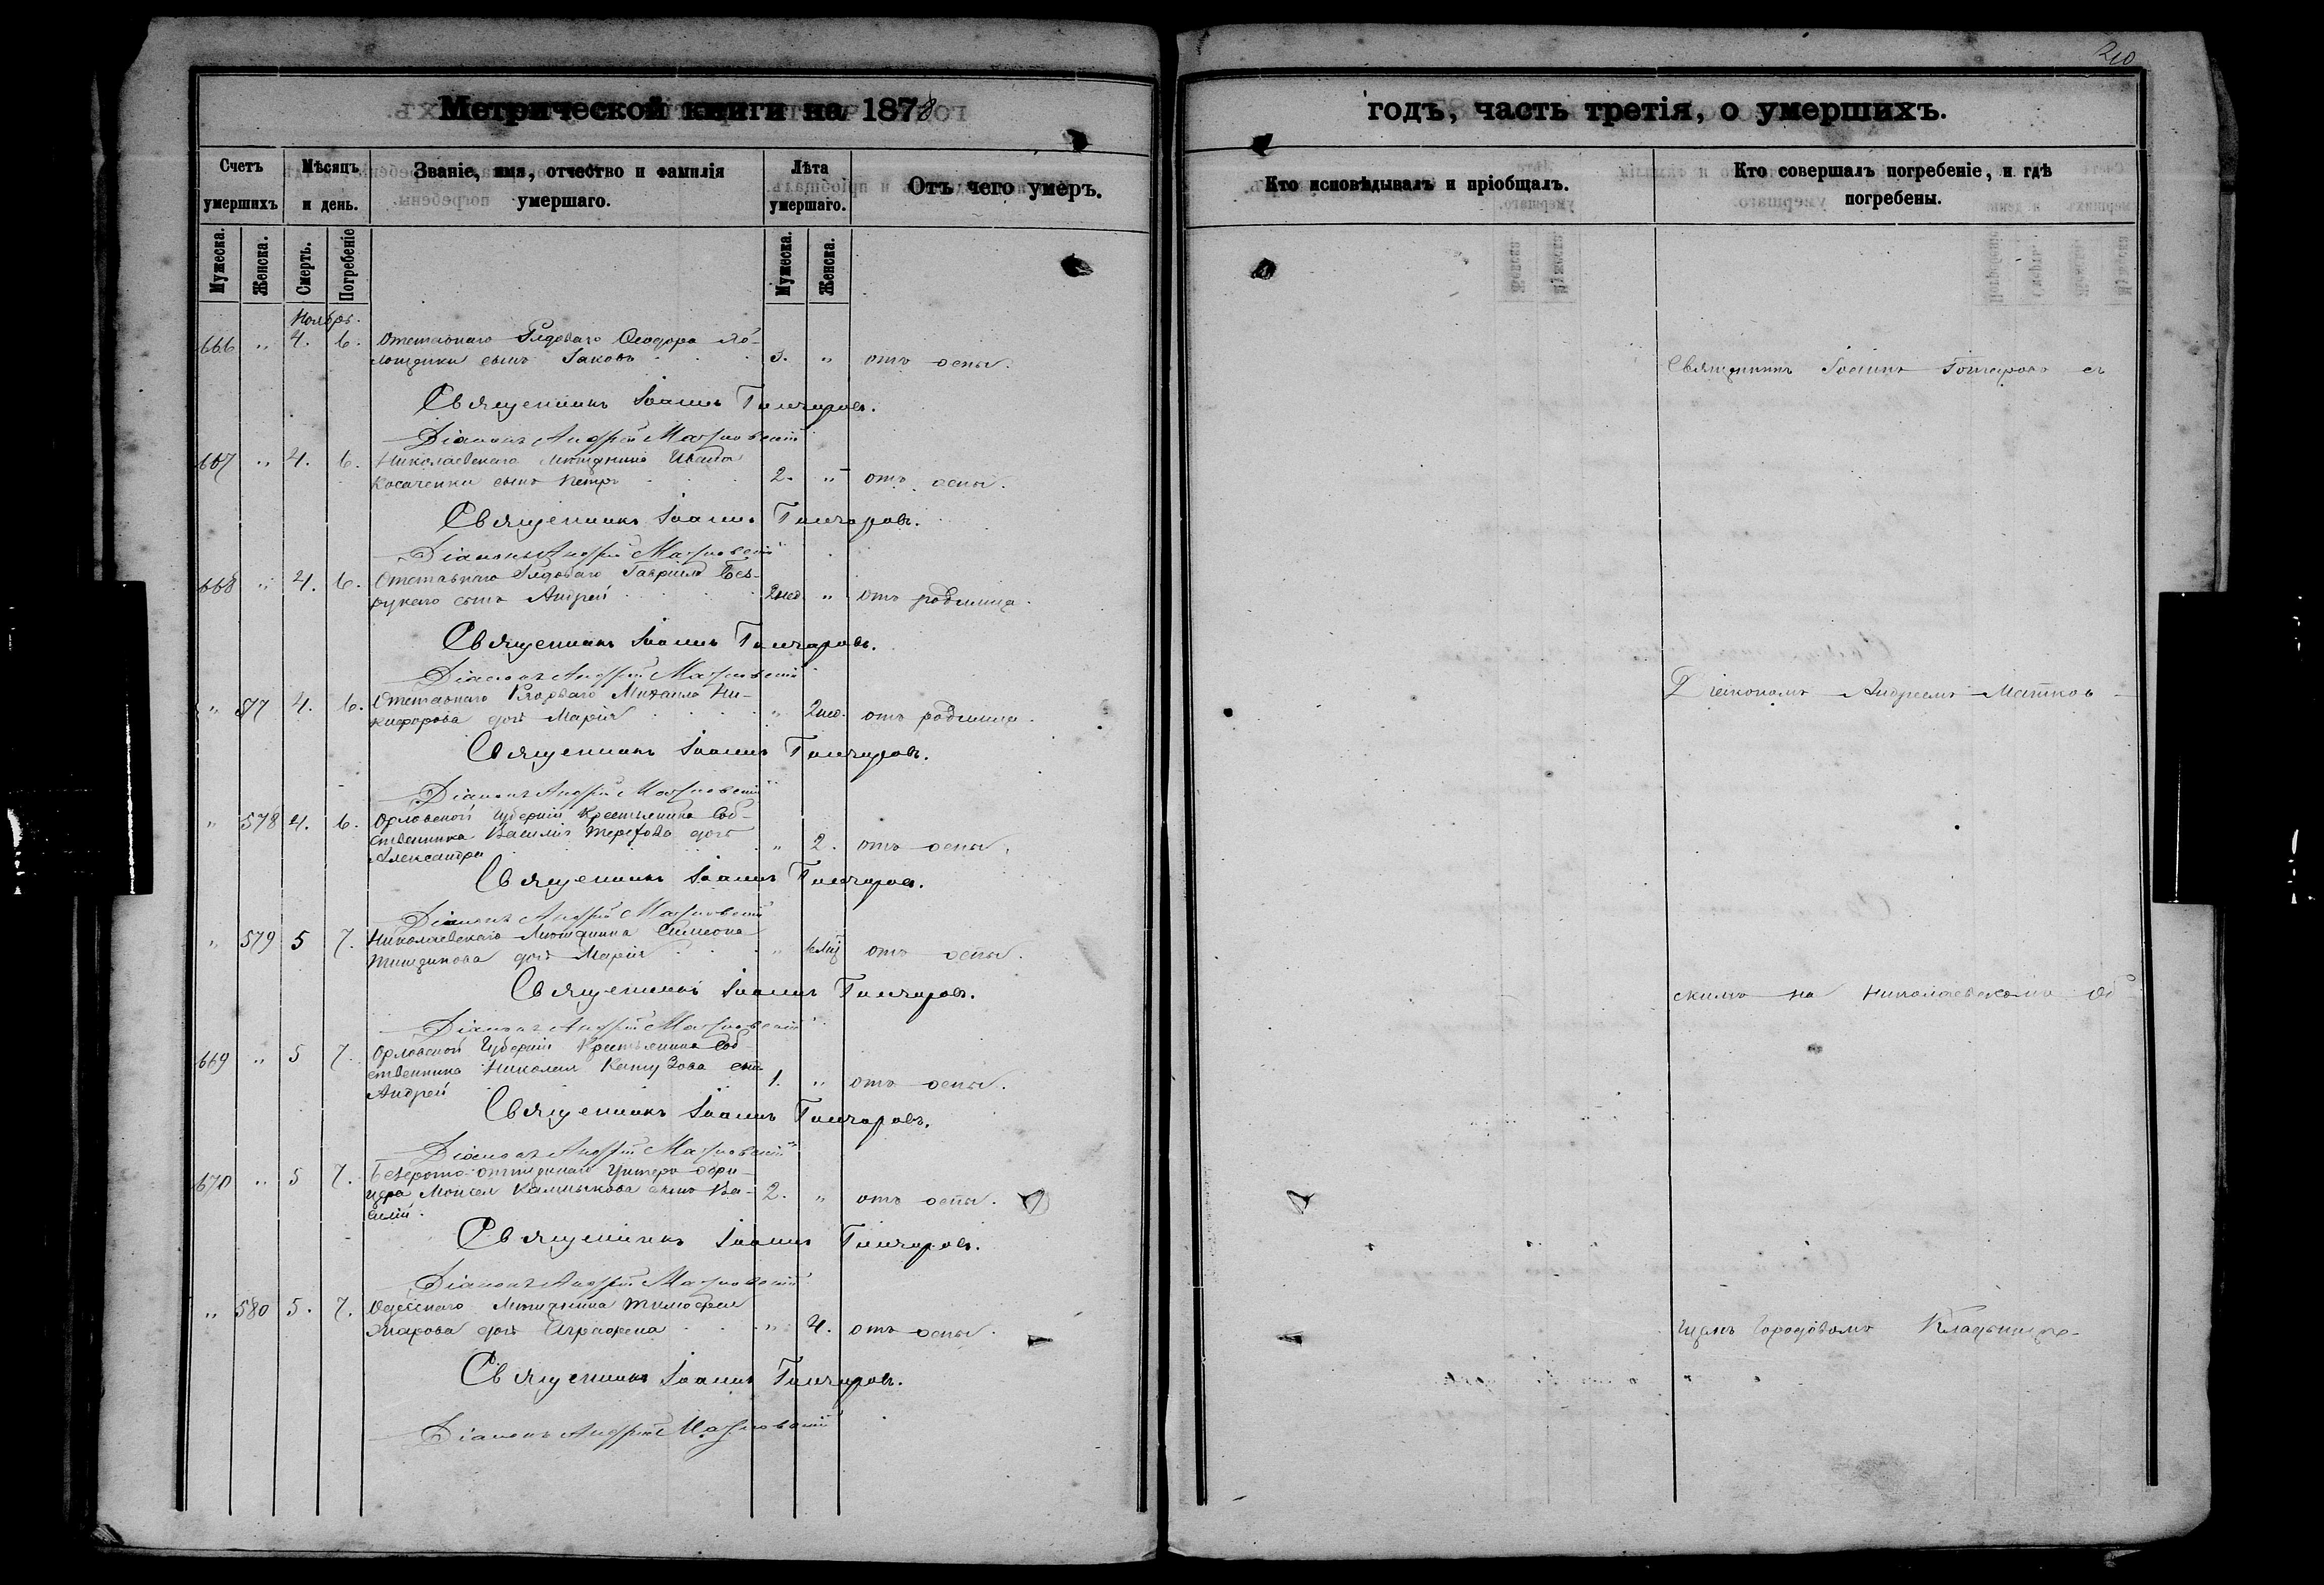 210
Метрической книги на 1878
годъ, часть третія, о умершихъ.
Счетъ умершихъ
Мѣсяцъ и день.
Званіе, имя, отчество и фамилія умершаго.
Лѣта умершаго.
Отъ чего умеръ.
Кто исповѣдывалъ и пріобщалъ.
Кто совершалъ погребеніе, и гдѣ погребены.
Мужеска.
Женска.
Смерть.
Погребеніе
Мужеска.
Женска.
Ноябрь.
666 " 4. 6. Отставнаго Рядоваго Ѳеодора
сынъ Іаковъ 3. " отъ оспы.
Священникъ Іоаннъ Гончаровъ.
Діаконъ Андрей Матковскій
667 " 4. 6. Николаевскаго Мѣщанина Ивана
Косаченки сынъ Петръ 2. " отъ оспы.
Священникъ Іоаннъ Гончаровъ.
Діаконъ Андрей Матковскій
668 " 4. 6. Отставнаго Рядоваго Гавріила Без-
рукаго сынъ Андрей 2 нед. " отъ родимца.
Священникъ Іоаннъ Гончаровъ.
Діаконъ Андрей Матковскій
" 577 4. 6. Отставнаго Рядоваго Михаила Ни-
кифорова дочь Марія " 2 нед. отъ родимца.
Священникъ Іоаннъ Гончаровъ.
Діаконъ Андрей Матковскій
" 578 4. 6. Орловской Губерніи Крестьянина Соб-
ственника Василія Терехова дочь
Александра " 2. отъ оспы.
Священникъ Іоаннъ Гончаровъ.
Діаконъ Андрей Матковскій
" 579 5 7. Николаевскаго Мѣщанина Симеона
дочь Марія " отъ оспы.
Священникъ Іоаннъ Гончаровъ.
Діаконъ Андрей Матковскій
669 " 5 7. Орловской Губерніи Крестьянина Соб-
ственника Николая сынъ
Андрей 1. " отъ оспы.
Священникъ Іоаннъ Гончаровъ.
Діаконъ Андрей Матковскій
670 " 5 7. Унтеръ-офи-
цера Моисея Калмыкова сынъ Ва-
силій. 2. " отъ оспы.
Священникъ Іоаннъ Гончаровъ.
Діаконъ Андрей Матковскій
" 580 5. 7. Одесскаго Мѣщанина Тимофея
дочь Аграфена " 4. отъ оспы.
Священникъ Іоаннъ Гончаровъ.
Діаконъ Андрей Матковскій
Священникъ Іоаннъ Гончаровъ съ
Діакономъ Андреемъ Матков-
скимъ на Николаевскомъ об-
щемъ Городовомъ Кладбищѣ.